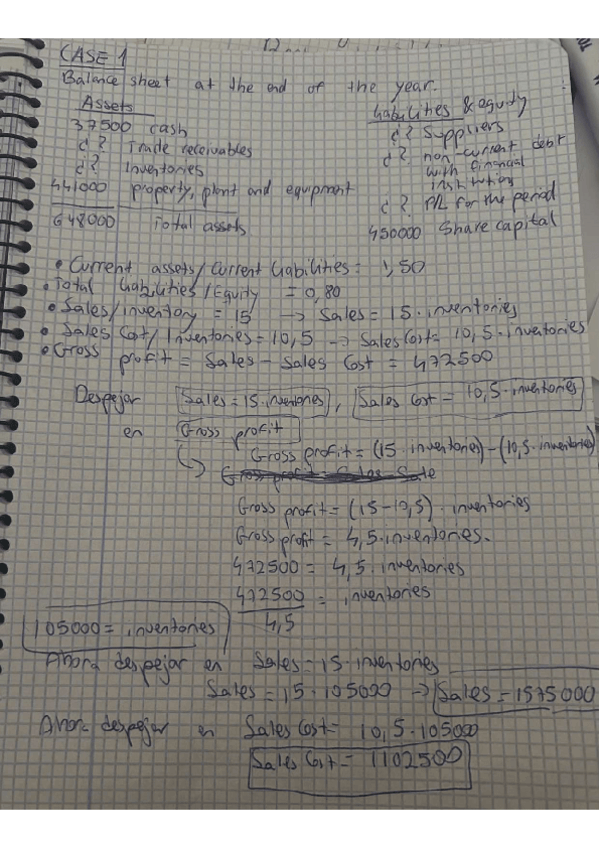 CASE 1
Balance sheet at the end of the year.
Assets
37500 cash
¿? Trade receivables
¿? Inventories
441000 property, plant and equipment
648000 Total assets
Liabilities & equity
¿? Suppliers
¿? non-current debt
with financial
institution
¿? P/L for the period
450000 Share capital
• Current assets/Current liabilities = 1,50
• Total liabilities/Equity = 0,80
• Sales/inventory = 15 → Sales = 15 · inventories
• Sales Cost/Inventories = 10,5 → Sales Cost = 10,5 · inventories
• Gross profit = Sales - Sales Cost = 472500
Despejar Sales = 15 · inventories, Sales Cost = 10,5 · inventories
en Gross profit
↳ Gross profit = (15 · inventories) - (10,5 · inventories)
Gross profit = (15-10,5) · inventories
Gross profit = 4,5 · inventories.
472500 = 4,5 · inventories
472500 = inventories
4,5
105000 = inventories
Ahora despejar en Sales = 15 · inventories
Sales = 15 · 105000 → Sales = 1575000
Ahora despejar en Sales Cost = 10,5 · 105000
Sales Cost = 1102500